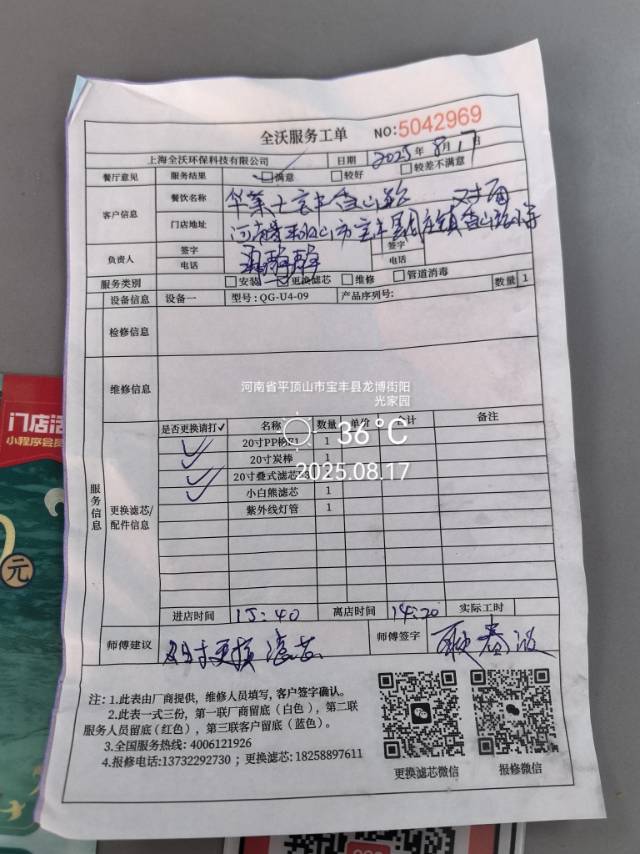 全沃服务工单
NO:5042969
上海全沃环保科技有限公司 日期 2025年8月17日
餐厅意见 服务结果 满意 较好 较差不满意
客户信息 餐饮名称 华莱士宝丰香山路
对面
门店地址 河南省平顶山市宝丰县 镇香山路
负责人 签字 签字
电话 电话
服务类别 安装 更换滤芯 维修 管道消毒
设备信息 设备一 型号:QG-U4-09 产品序列号: 数量 1
检修信息
维修信息
河南省平顶山市宝丰县龙博街阳
光家园
36°C
2025.08.17
服务信息
更换滤芯/
配件信息
是否更换请打✓ 名称 数量 单价 合计 备注
✓ 20寸PP棉F1 1
✓ 20寸炭棒 1
✓ 20寸叠式滤芯 1
✓ 小白熊滤芯 1
紫外线灯管 1
进店时间 13:40 离店时间 14:20 实际工时
师傅建议 及时更换滤芯 师傅签字
注:1.此表由厂商提供,维修人员填写,客户签字确认。
2.此表一式三份,第一联厂商留底(白色),第二联
服务人员留底(红色),第三联客户留底(蓝色)。
3.全国服务热线:4006121926
4.报修电话:13732292730;更换滤芯:18258897611
更换滤芯微信 报修微信
门店活
小程序会员
元